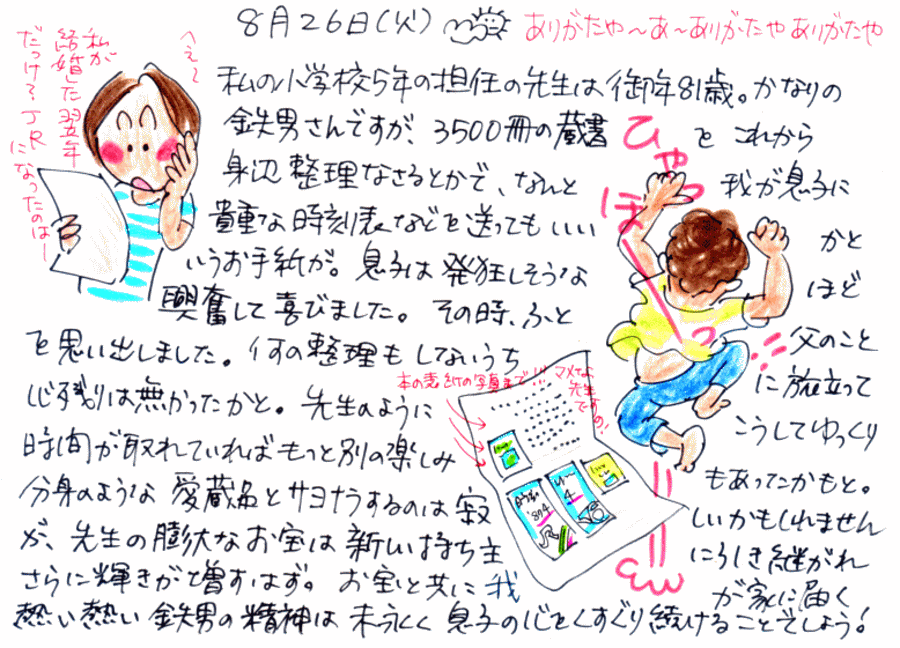 8月26日(火)
ありがたや〜あ〜ありがたやありがたや
へぇ〜
私が
結婚した翌年
だっけ?JR
になったのはー
私の小学校5年の担任の先生は御年81歳。かなりの
鉄男さんですが、3500冊の蔵書をこれから
身辺整理なさるとかで、なんと我が息子に
貴重な時刻表などを送ってもいいかと
いうお手紙が。息子は発狂しそうなほど
興奮して喜びました。その時、ふと父のこと
を思い出しました。何の整理もしないうちに旅立って
心残りは無かったかと。先生のようにこうしてゆっくり
時間が取れていればもっと別の楽しみもあったかもと。
分身のような愛蔵品とサヨナラするのは寂しいかもしれません
が、先生の膨大なお宝は新しい持ち主にひき継がれ
さらに輝きが増すはず。お宝と共に我が家に届く
熱い熱い鉄男の精神は末永く息子の心をくすぐり続けることでしょう!
ひゃっほーっ
本の表紙の写真まで!!!
マメな
先生
ですの!